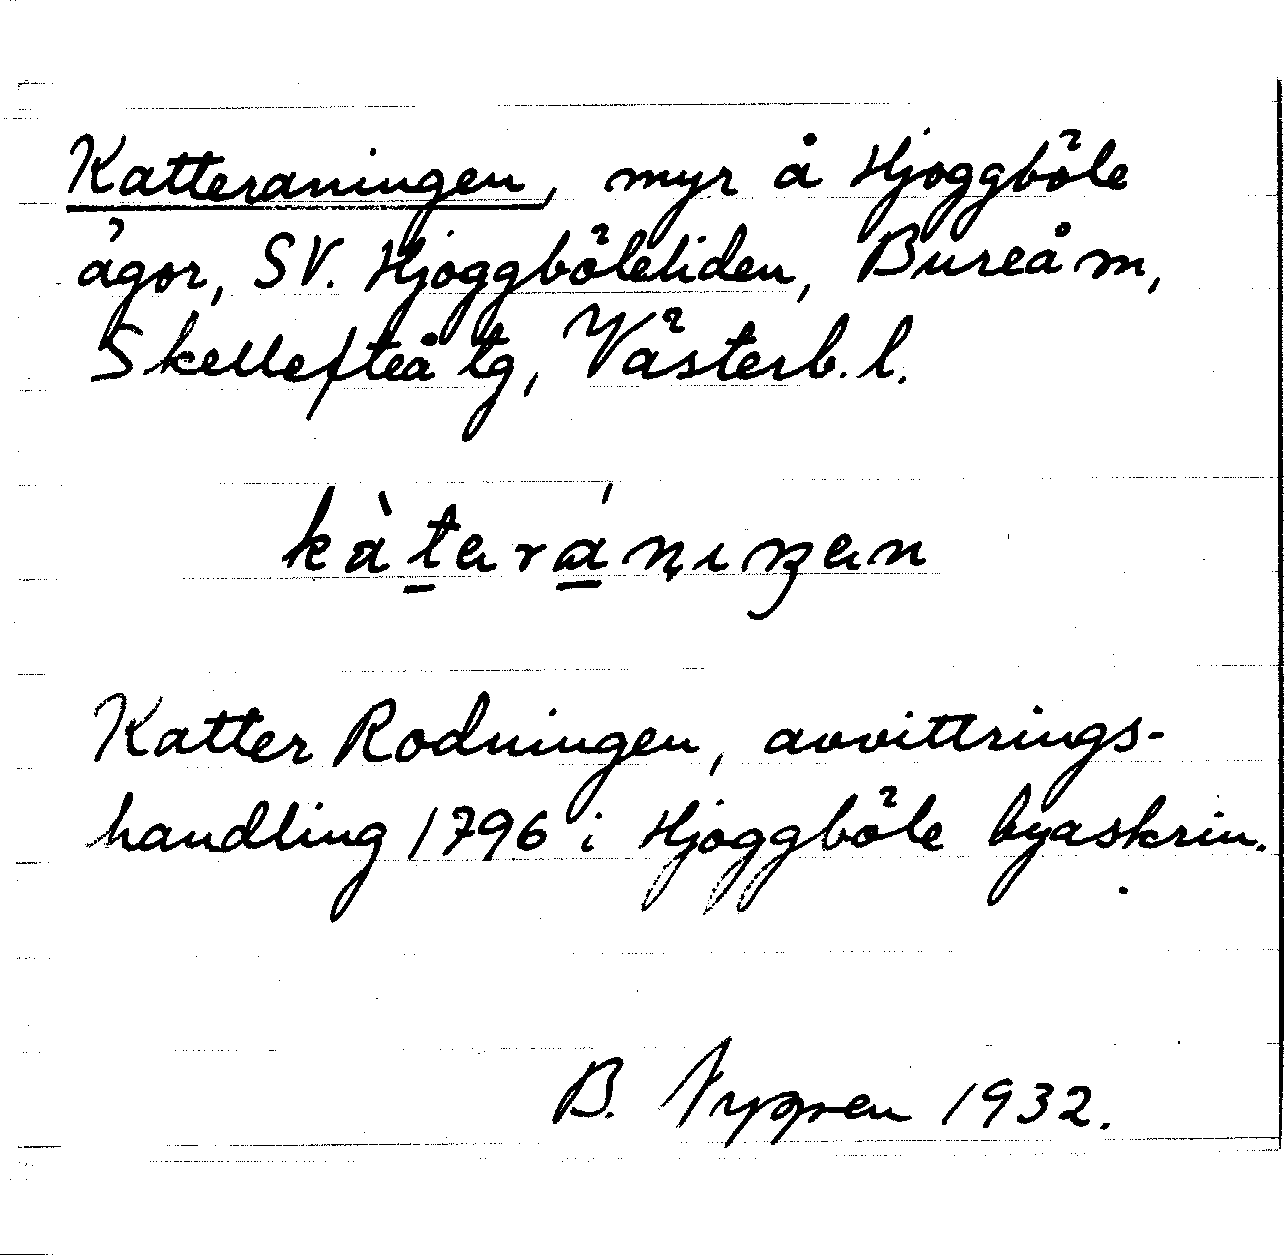 Katteraningen, myr å Hjoggböle
ägor, SV. Hjoggböleliden, Bureå m,
Skellefteå tg, Västerb. l.
kàt̲erá̲ṇıŋen
Katter Rodningen, avvittrings-
handling 1796 i Hjoggböle byaskrin.
B. Nygren 1932.